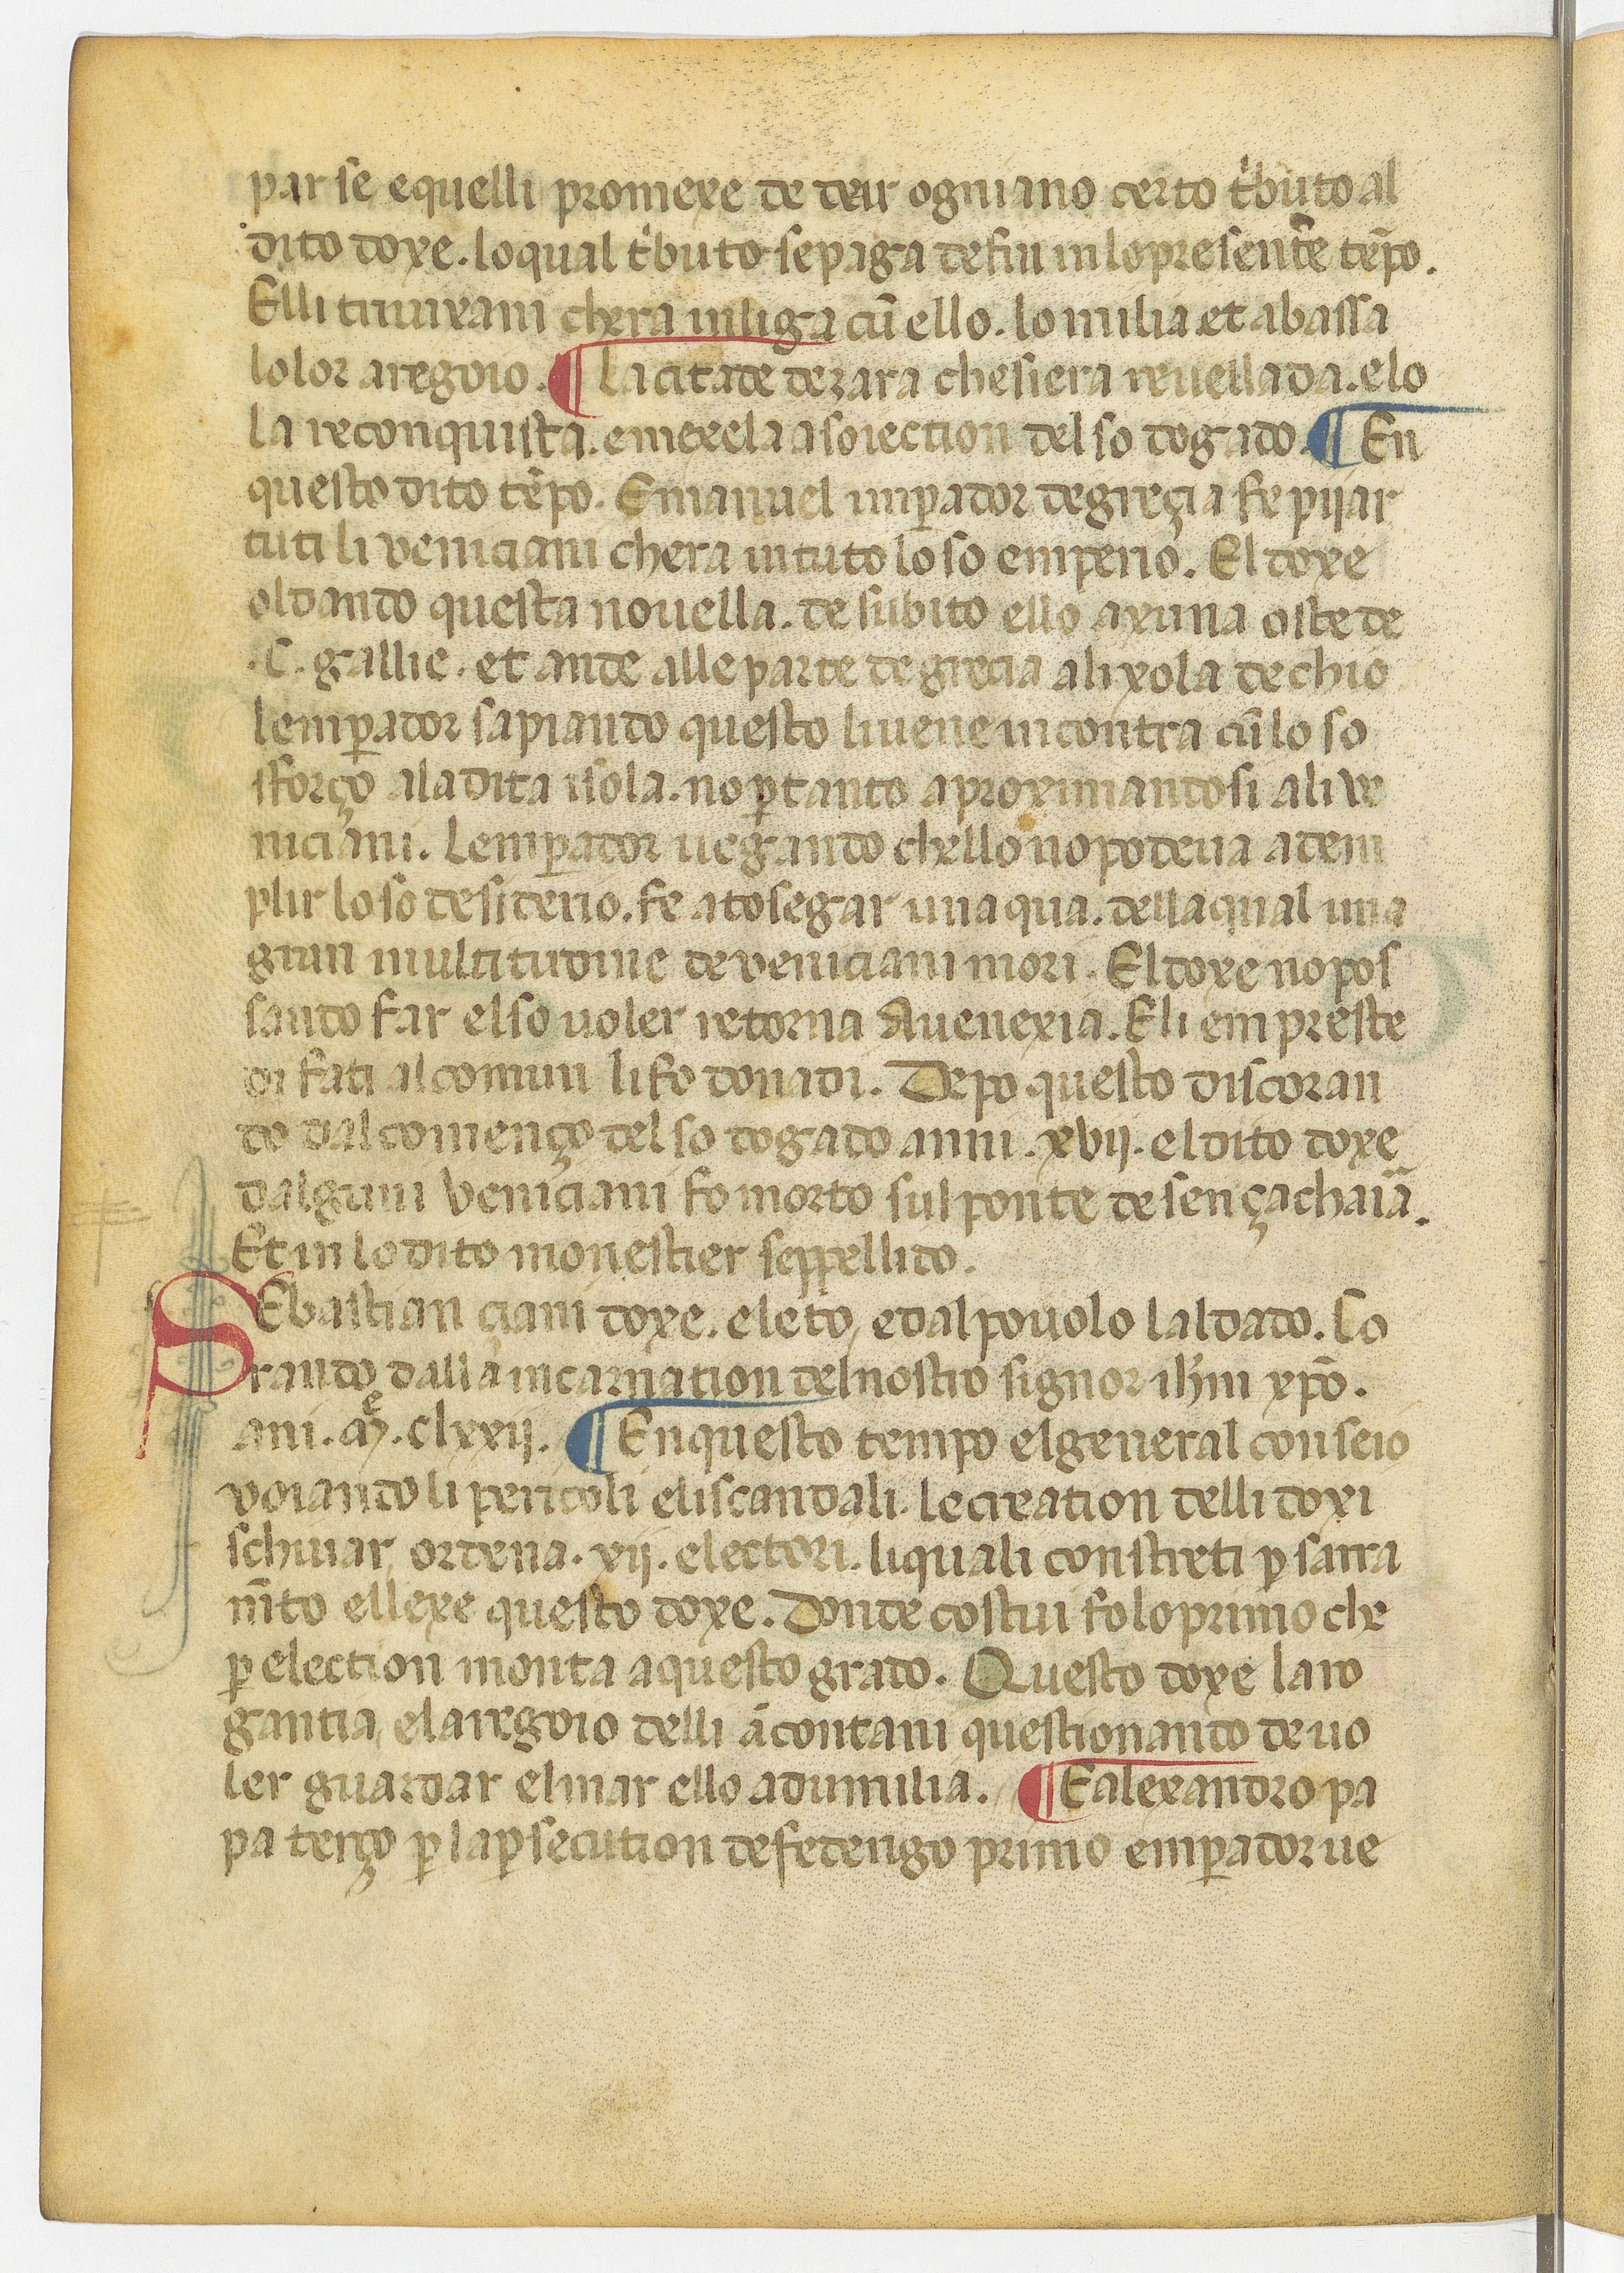 par se e quelli promexe de deur ogni ano certo t'buto al
dito doxe. lo qual t'buto se paga de fin in lo presente tēpo.
Elli trivixani ch'era in liga cū ello. lo milia et abassa
lo lor aregoio. ¶ La citade de zara che si era reuellada. e lo
la reconquista. e mexela a soiection del so dogado. ¶ En
questo dito tēpo. Emanuel imp̄ador de greçia fe pijar
tuti li veniciani ch'era in tuto lo so emperio. El doxe
oldando questa nouella. de subito ello axuna oste de
.C. gallie. et ande alle parte de grecia a lixola de chio
lemp̄ador sapiando questo li uene in contra cū lo so
sforço a la dita isola. no p̄ tanto aproximandosi a li ve
niciani. Lemp̄ador uegando ch'ello no podeua adem
plir lo so desiderio. fe atosegar una qua. della qual una
gran multitudine de veniciani mori. El doxe no pos
sando far el so uoler retorna A uenexia. E li empreste
di fati al comun li fo donadi. Depo questo discoran
do dal començo del so dogado anni .xvij. el dito doxe
dalguni Veniciani fo morto sul ponte de sen çachaiā.
Et in lo dito monestier seppellido.
SEbastian çiani doxe. eleto, e dal pouolo laldado. Co
rando dalla incarnation del nostro signor ihm xpō.
ani. Mͤ. clxxij. ¶ En questo tempo el general conseio
voiando li pericoli e li scandali. le creation delli doxi
schiuar, ordena .xij. electori. li quali constreti p̄ sarra
mīto ellexe questo doxe. Donde costui fo lo primo che
p̄ election monta a questo grado. Questo doxe laro
gantia, e laregoio delli ācontani questionando de uo
ler guardar el mar ello adumilia. ¶ E alexandro pa
pa terço p̄ la p̄secution de federigo primo emp̄ador ue